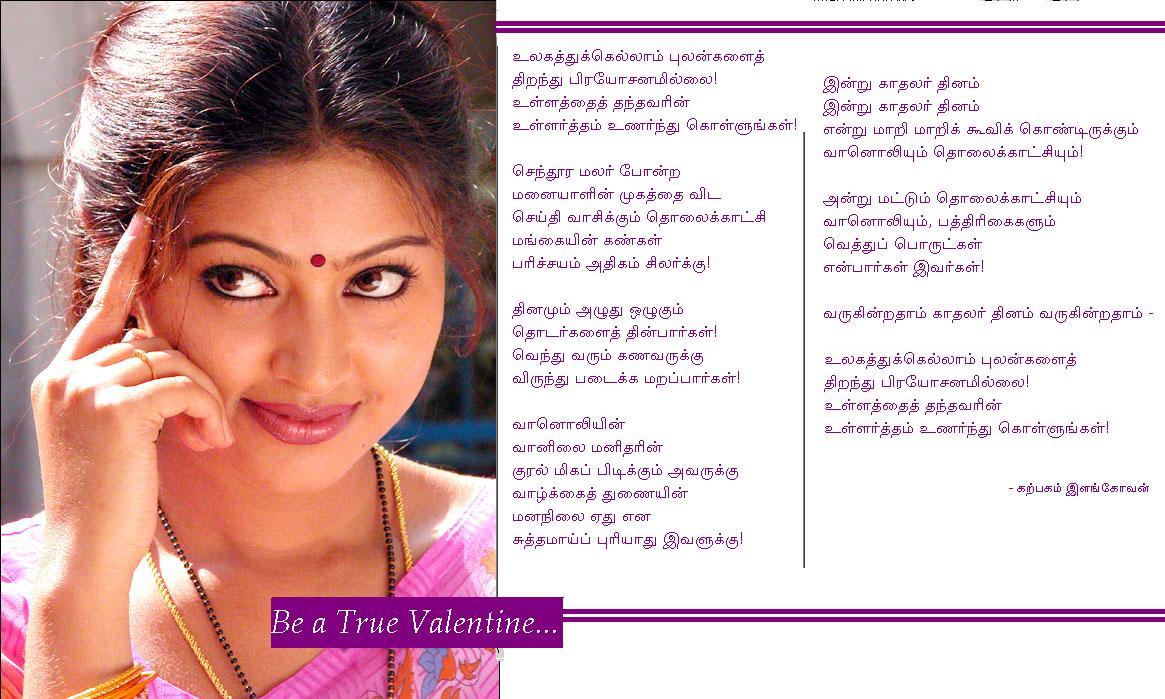 உலகத்துக்கெல்லாம் புலன்களைத்
திறந்து பிரயோசனமில்லை!
உள்ளத்தைத் தந்தவரின்
உள்ளர்த்தம் உணர்ந்து கொள்ளுங்கள்!
செந்தூர மலர் போன்ற
மனையாளின் முகத்தை விட
செய்தி வாசிக்கும் தொலைக்காட்சி
மங்கையின் கண்கள்
பரிச்சயம் அதிகம் சிலர்க்கு!
தினமும் அழுது ஒழுகும்
தொடர்களைத் தின்பார்கள்!
வெந்து வரும் கணவருக்கு
விருந்து படைக்க மறப்பார்கள்!
வானொலியின்
வானிலை மனிதரின்
குரல் மிகப் பிடிக்கும் அவருக்கு
வாழ்க்கைத் துணையின்
மனநிலை ஏது என
சுத்தமாய்ப் புரியாது இவளுக்கு!
இன்று காதலர் தினம்
இன்று காதலர் தினம்
என்று மாறி மாறிக் கூவிக் கொண்டிருக்கும்
வானொலியும் தொலைக்காட்சியும்!
அன்று மட்டும் தொலைக்காட்சியும்
வானொலியும், பத்திரிகைகளும்
வெத்துப் பொருட்கள்
என்பார்கள் இவர்கள்!
வருகின்றதாம் காதலர் தினம் வருகின்றதாம் -
உலகத்துக்கெல்லாம் புலன்களைத்
திறந்து பிரயோசனமில்லை!
உள்ளத்தைத் தந்தவரின்
உள்ளர்த்தம் உணர்ந்து கொள்ளுங்கள்!
- கற்பகம் இளங்கோவன்
Be a True Valentine...